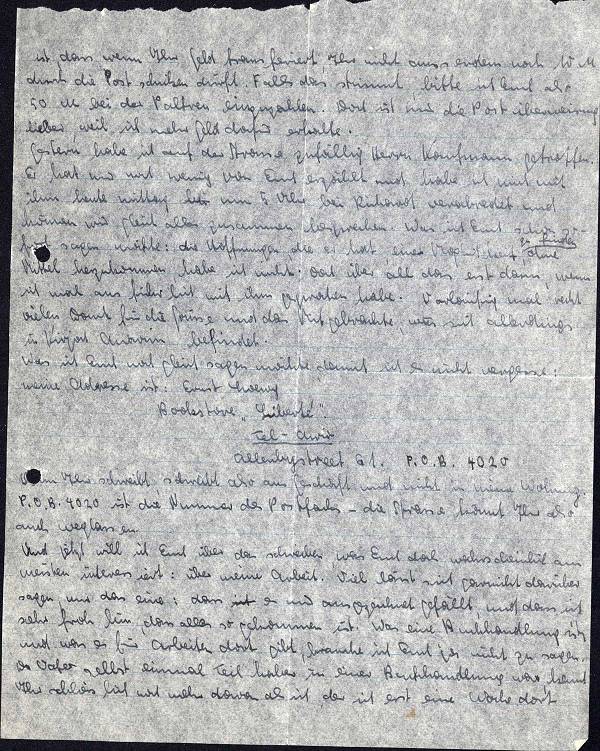 ist dass wenn Ihr Geld transferiert, Ihr nicht ausserdem noch 10 M
durch die Post schicken dürft. Falls das stimmt, bitte ich Euch also
50 M bei der Paltreu einzuzahlen. Dort ist mir die Postüberweisung
lieber weil ich mehr Geld dafür erhalte.
Gestern habe ich auf der Strasse zufällig Herrn Kaufmann getroffen.
Er hat mir noch wenig von Euch erzählt und habe ich mich mit
ihm heute mittag um 5 Uhr bei Richard verabredet und
können wir gleich alles zusammen besprechen. Was ich Euch
sagen möchte: die Hoffnungen die er hat, einen ohne
Mittel herzukommen habe ich nicht; doch über all das erst dann, wenn
ich mal ausführlich mit ihm gesprochen habe. Vorläufig mal recht
vielen Dank für die Grüsse und das Mitgebrachte, was sich allerdings
in Kirjat Anavim befindet.
Was ich Euch noch gleich sagen möchte damit ich es nicht vergesse:
meine Adresse ist: Ernst Loewy
Bookstore „Liberté“
Tel-Awiw
Allenbystreet 61. P.O.B. 4020
Wenn Ihr schreibt, schreibt also ans Geschäft und nicht in meine Wohnung.
P.O.B. 4020 ist die Nummer des Postfachs – die Strasse könnt Ihr also
auch weglassen.
Und jetzt will ich Euch über das schreiben was Euch doch wahrscheinlich am
meisten interessiert: über meine Arbeit. Viel lässt sich garnicht darüber
sagen nur das eine: dass es mir ausgezeichnet gefällt, und dass ich
sehr froh bin, dass alles so gekommen ist. Was eine Buchhandlung ist
und was es für Arbeiten dort gibt, brauche ich Euch ja nicht zu sagen.
Da Vater selbst einmal Teilhaber in einer Buchhandlung war kennt
Ihr schliesslich noch mehr davon als ich der ich erst eine Woche dort